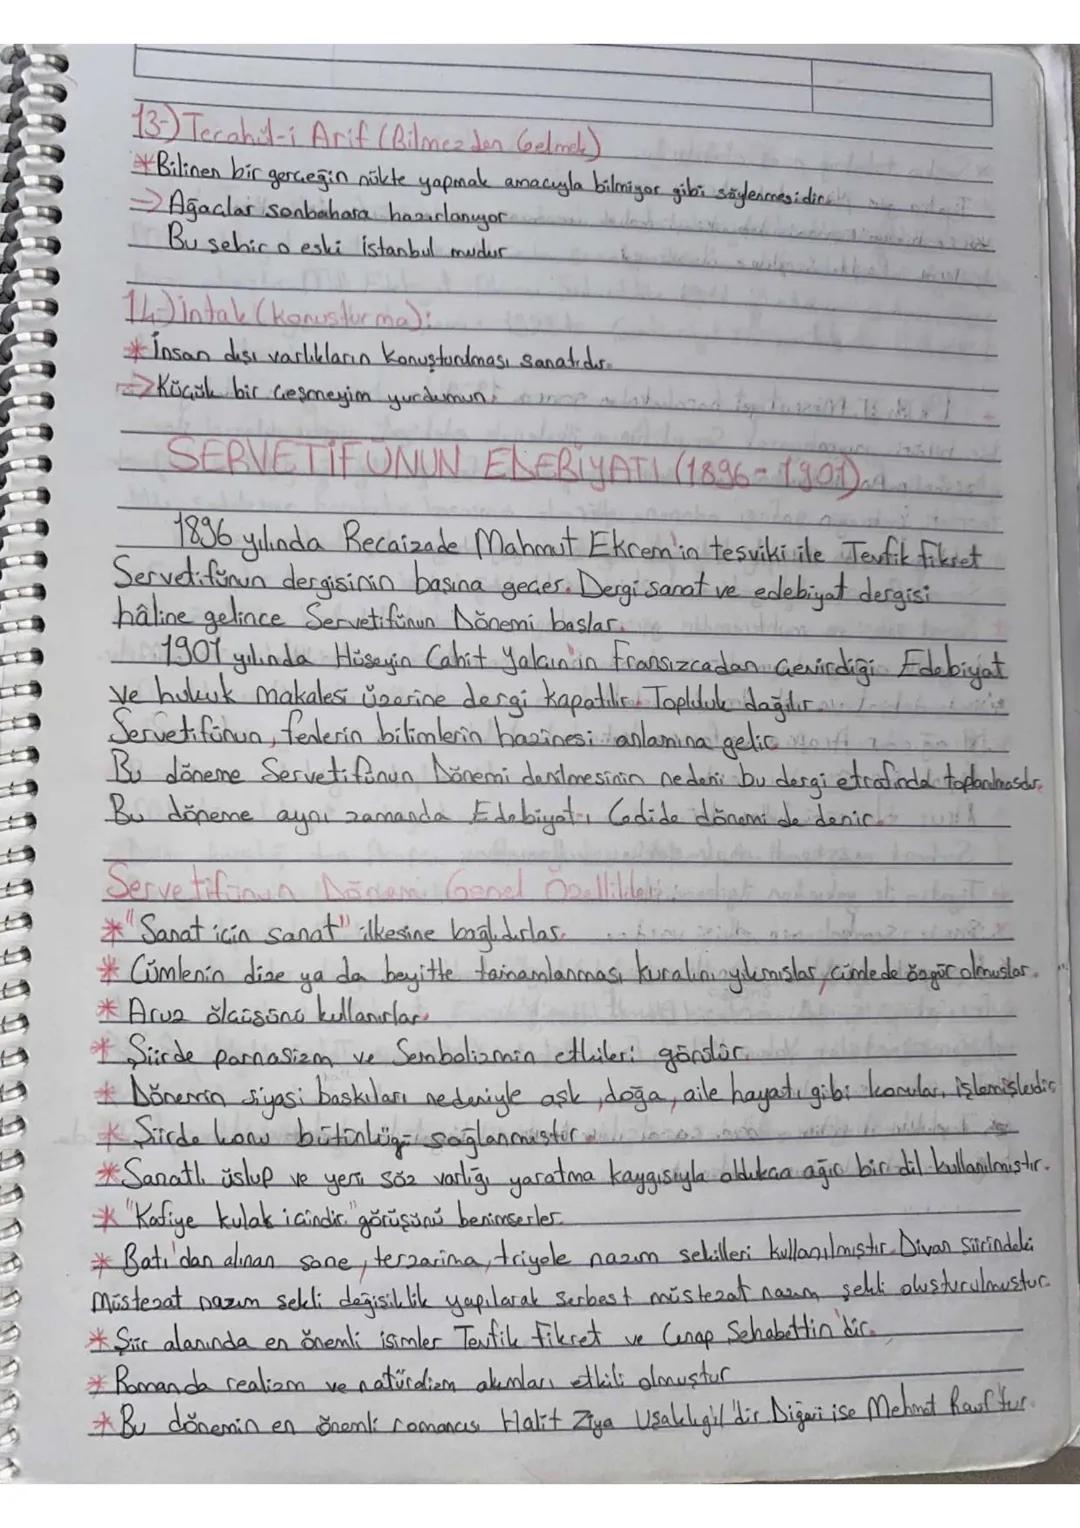 13-) Tecahül-i Arif (Bilmezden Gelmek)
* Bilinen bir gerçeğin nükte yapmak amacıyla bilmiyor gibi söylenmesidir.
→ Ağaçlar sonbahara hazırlanıyor
Bu şehir o eski İstanbul mudur
14-) İntak (konuşturma):
* İnsan dışı varlıkların konuşturulması sanatıdır.
→ Küçük bir çeşmeyim yurdumun
SERVETİFÜNUN EDEBİYATI (1896-1901)
1896 yılında Recaizade Mahmut Ekrem'in teşviki ile Tevfik Fikret
Servetifünun dergisinin başına geçer. Dergi sanat ve edebiyat dergisi
hâline gelince Servetifünun Dönemi başlar.
1901 yılında Hüseyin Cahit Yalçın'ın Fransızcadan çevirdiği Edebiyat
ve hukuk makalesi üzerine dergi kapatılır. Topluluk dağılır.
Servetifünun, fenlerin bilimlerin hazinesi anlamına gelir.
Bu döneme Servetifünun Dönemi denilmesinin nedeni bu dergi etrafında toplanılmasıdır.
Bu döneme aynı zamanda Edebiyat-ı Cedide dönemi de denir.
Servetifünun Dönemi Genel Özellikleri:
* "Sanat için sanat" ilkesine bağlıdırlar.
* Cümlenin dize ya da beyitte tamamlanması kuralını yıkmışlar, cümlede özgür olmuşlar.
* Aruz ölçüsünü kullanırlar.
* Şiirde parnasizm ve Sembolizmin etkileri görülür.
* Dönemin siyasi baskıları nedeniyle aşk, doğa, aile hayatı gibi konuları işlemişlerdir
* Şiirde konu bütünlüğü sağlanmıştır.
* Sanatlı üslup ve yeni söz varlığı yaratma kaygısıyla oldukça ağır bir dil kullanılmıştır.
* "Kafiye kulak içindir." görüşünü benimserler.
* Batı'dan alınan sone, terzarima, triyole nazım şekilleri kullanılmıştır. Divan şiirindeki
Müstezat nazım şekli değişiklik yapılarak serbest müstezat nazım şekli oluşturulmuştur.
* Şiir alanında en önemli isimler Tevfik Fikret ve Cenap Şehabettin'dir.
* Romanda realizm ve natüralizm akımları etkili olmuştur
* Bu dönemin en önemli romancısı Halit Ziya Uşaklıgil'dir. Diğeri ise Mehmet Rauf'tur.